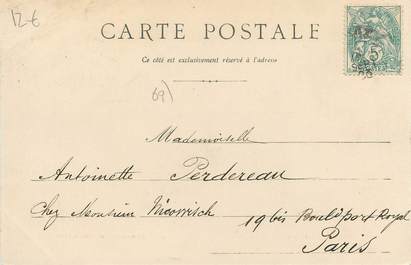 12-6
CARTE POSTALE
Ce côté est exclusivement réservé à l'adresse
69)
Mademoiselle
Antoinette Perdereau
Chez Monsieur
19 bis Bould Port Royal
Paris
5